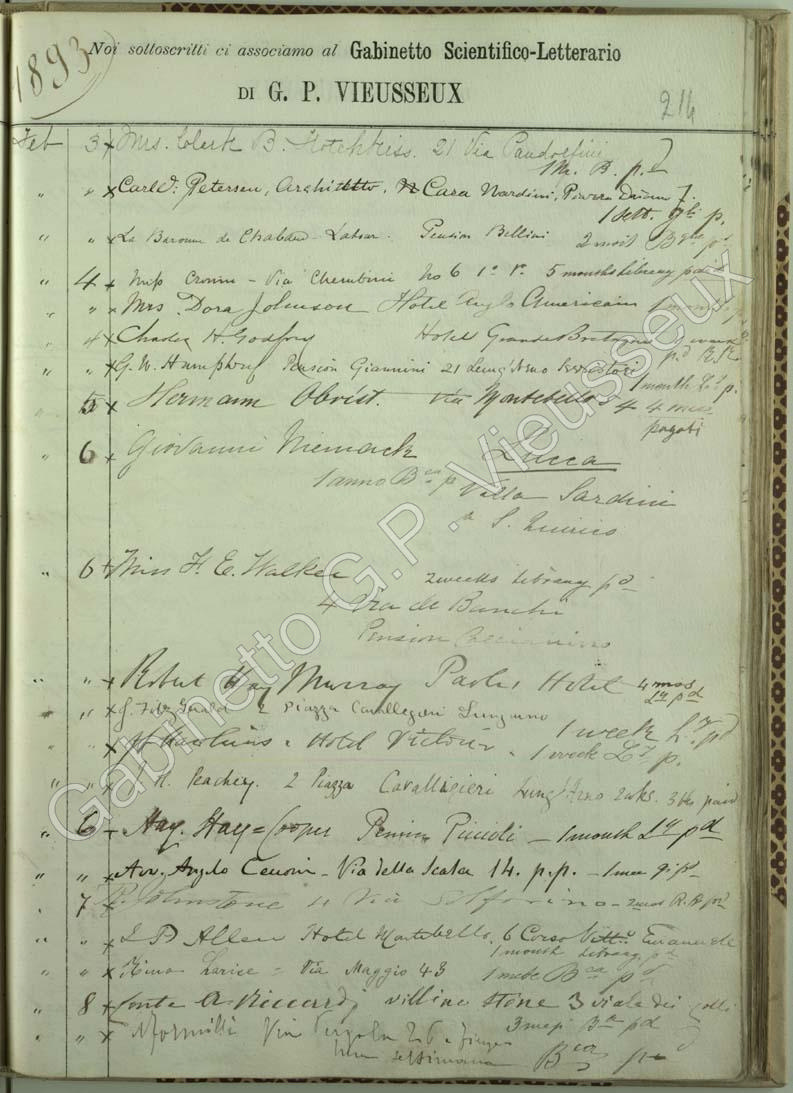 1893
Noi sottoscritti ci associamo al Gabinetto Scientifico-Letterario
DI G. P. VIEUSSEUX
214
Feb 3 x Mrs. Clark B. Hotchkiss. 21 Via Pandolfini
1 M. B. p.
" " x Carl V. Petersen, Casa Nardini, Piazza Duomo 7.
1 sett. p.
" " x La Baronne de Chabaud-Latour. Pension Bellini
2 mois
" 4 x Miss Cronin - Via Cherubini No 6 1o Po. 5 months Library paid
" " x Mrs. Dora Johnson Hotel Anglo Americain 1 month
" 4 x Charles H. Godfrey Hotel Grande Bretagne
pd R.R.
" " x G. W. Humphrey Pension Giannini 21 Lung'Arno
1 month Ly p.
" 5 x Hermann Obrist. Via Montebello 54 4 mesi
pagati
" 6 x Giovanni Niemack Lucca
1 anno Bca p Villa Sardini
a S. Quirico
" 6 x Miss F. E. Walker 2 weeks Library pd
4 Via de Banchi
Pension
" " x Robert Hay Murray Paoli's Hotel 4 mos
Ly pd
" " x J. Fitz Gerald 2 Piazza Cavallegieri Lungarno
1 week Ly pd
" " x Hawkins. Hotel Victoria. 1 week Ly p.
" " x H. Peachey. 2 Piazza Cavalligieri Lung'Arno 2 wks. paid
" 6 x Hay. Hay=Cooper Pension Piccioli - 1 month Ly pd
" " x Avv. Angelo - Via della Scala 14. p.p. - 1 mese
" 7 x Johnstone 4 Via Solferino - R.R. pd
" " x Allen Hotel Montebello. 6 Corso Vitto Emanuele
1 month Library pd
" " x Larice = Via Maggio 43 1 mese Bca pd
" 8 x Conte A. Riccardi villino Stone 3 viale dei Colli
3 mesi Bca pd
" " x Via Pergola
Una settimana Bca
Gabinetto G.P. Vieusseux